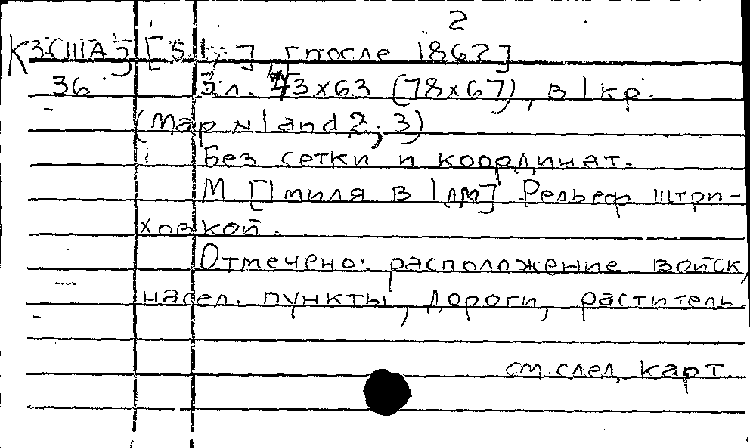 2
К3.(США) [S.l.], [после 1862]
36 3 л. 73х63 (78х67), в 1 кр.
(Map N 1 and 2, 3)
Без сетки и координат.
М [1 миля в 1 дм] Рельеф штри-
ховкой.
Отмечено: расположение войск,
насел. пункты, дороги, раститель.
см. след. карт.